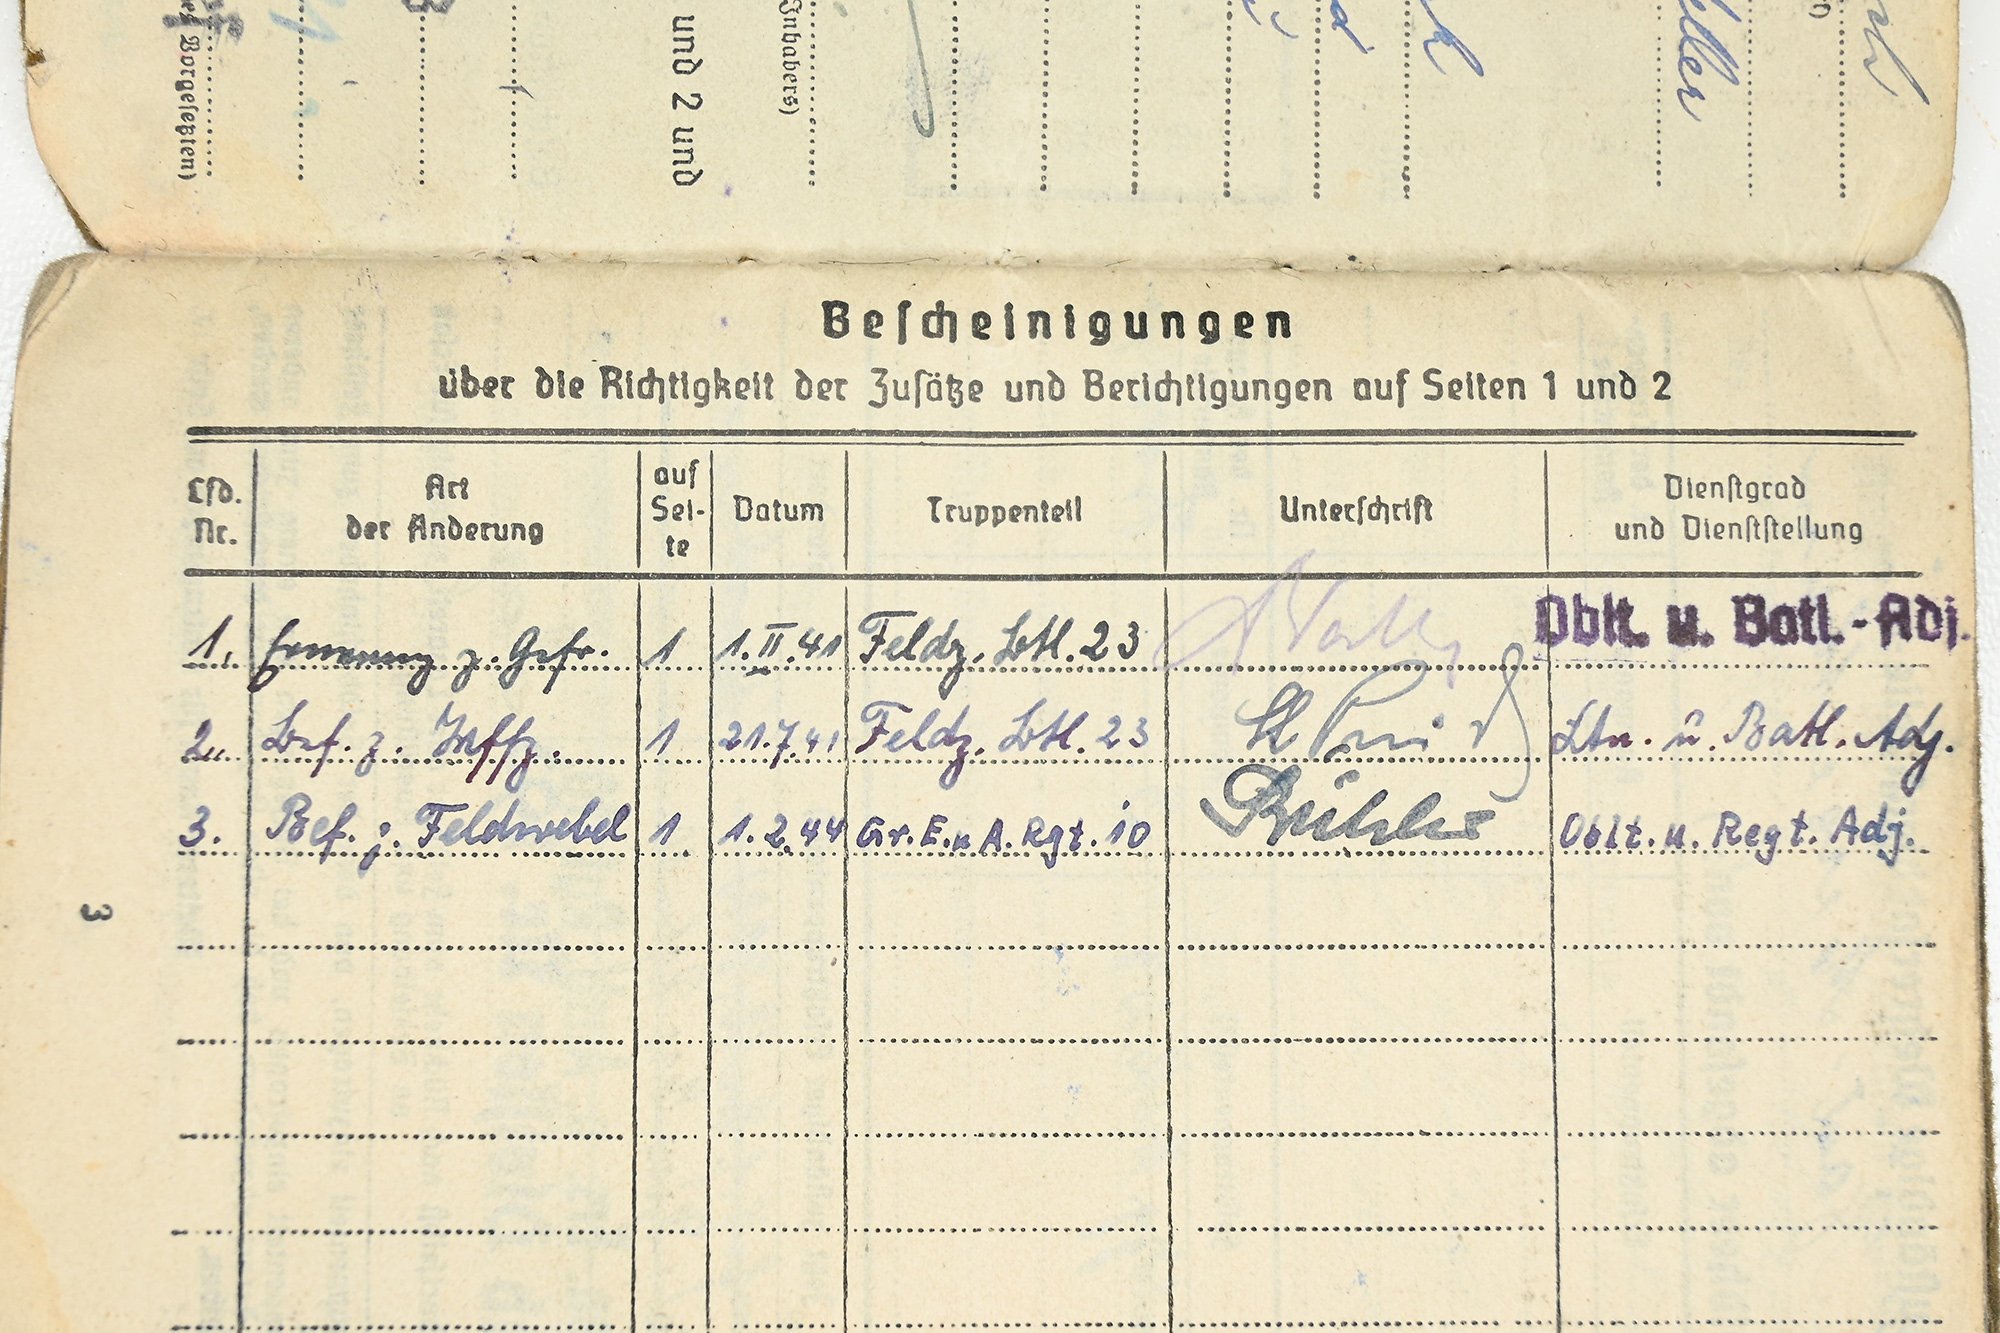 Vorgesetzten)
und 2 und
Inhabers)
Bescheinigungen
über die Richtigkeit der Zusätze und Berichtigungen auf Seiten 1 und 2
Lfd. Nr. Art der Änderung auf Sei-te Datum Truppenteil Unterschrift Dienstgrad und Dienststellung
1. Ernennung z. Gefr. 1 1.II.41 Feldz. Btl. 23 Oblt. u. Batl.-Adj.
2. Bef. z. Uffz. 1 21.7.41 Feldz. Btl. 23 Ltn. u. Batl. Adj.
3. Bef. z. Feldwebel 1 1.2.44 Gr. E. u A. Rgt. 10 Oblt. u. Regt. Adj.
3